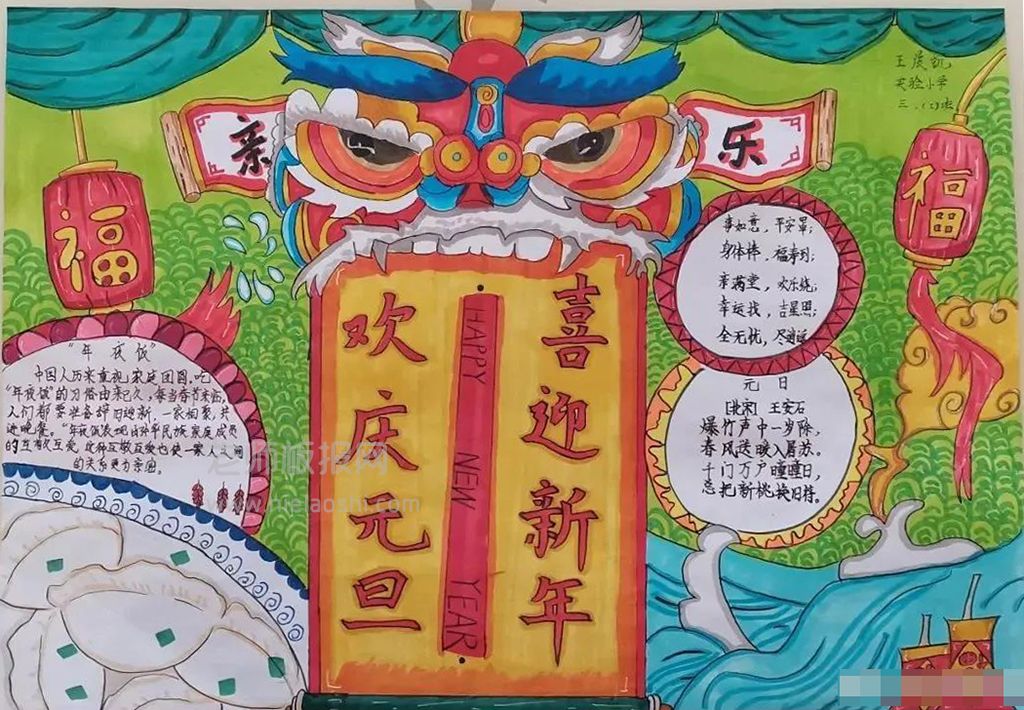 王晨凯
实验小学
三.(2)班
亲
乐
福
福
喜迎新年
欢庆元旦
HAPPY NEW YEAR
事如意，平安罩;
身体棒，福寿到;
幸满堂，欢乐绕;
幸运找，吉星照;
全无忧，尽逍遥
元日
[北宋] 王安石
爆竹声中一岁除，
春风送暖入屠苏。
千门万户曈曈日，
总把新桃换旧符。
"年夜饭"
中国人历来重视家庭团圆。吃
"年夜饭"的习俗由来已久，每当春节来临，
人们都要准备辞旧迎新，一家相聚，共
进晚餐。"年夜饭表现出华民族家庭成员
的互敬互爱，这种互敬互爱也使一家人之间
的关系更为亲密。
老师板报网
www.njelaoshi.com